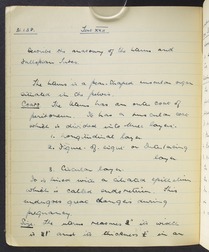 D.127. Test XXX
Describe the anatomy of the Uterus and
Fallopian Tubes
The Uterus is a pear-shaped muscular organ
situated in the pelvis.
Coats. The Uterus has an outer coat of
peritoneum. It has a muscular coat
which is divided into three layers.
1. Longitudinal layer
2. Figure of eight or Interlacing
layer
3. Circular layer.
It is lined with a ciliated epithelium
which is called endometrium. This
undergoes great changes during
pregnancy.
Size. The Uterus measures 2" in width
is 3" and its thickness 1" in an